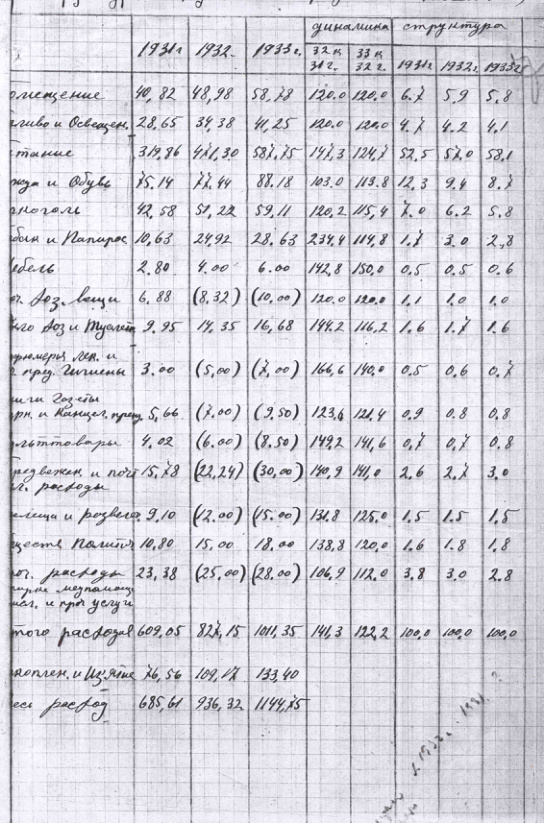 динамика структура
1931г 1932г. 1933г. 32 к 31 г. 33 к 32 г. 1931г 1932г. 1933г
омещение 40,82 48,98 58,78 120.0 120,0 6.7 5.9 5.8
ливо и Освещен. 28,65 34,38 41,25 120.0 120,0 4.7 4.2 4.1
тание 319,86 471,30 587,75 147,3 124,7 52,5 57,0 58,1
жда и Обувь 75.14 77,44 88.18 103.0 113.8 12,3 9,4 8.7
лкоголь 42,58 51,22 59,11 120,2 115,4 7.0 6.2 5.8
бак и Папирос 10,63 24,92 28.63 234,4 114,8 1,7 3.0 2,8
ебель 2.80 4.00 6.00 142,8 150,0 0,5 0,5 0.6
оч. Хоз. вещи 6,88 (8,32) (10,00) 120.0 120.0 1.1 1,0 1,0
Хоз и Туалетн 9,95 14,35 16,68 144.2 116,2 1.6 1.7 1.6
рюмерья лек. и
пред. Гигиены 3.00 (5,00) (7,00) 166,6 140,0 0,5 0,6 0,7
ниги Газеты
и Канцел. прин 5,66 (7.00) (9.50) 123,6 121,4 0,9 0.8 0.8
ульттовары 4,02 (6.00) (8,50) 149,2 141,6 0,7 0,7 0.8
редвежен. и почт 15,78 (22,24) (30,00) 140,9 141,0 2,6 2.7 3.0
расходы
елища и развлеч. 9,10 (12.00) (15.00) 131,8 125,0 1,5 1.5 1,5
ществ Полити 10,80 15,00 18.00 138,8 120,0 1.6 1.8 1.8
оч. расходы 23,38 (25,00) (28.00) 106,9 112,0 3.8 3,0 2.8
медпомощь
и проч услуги
того расходов 609,05 827,15 1011,35 141,3 122,2 100,0 100,0 100,0
коплен. и Изятие 76,56 109,17 133,40
есь расход 685,61 936,32 1144,75